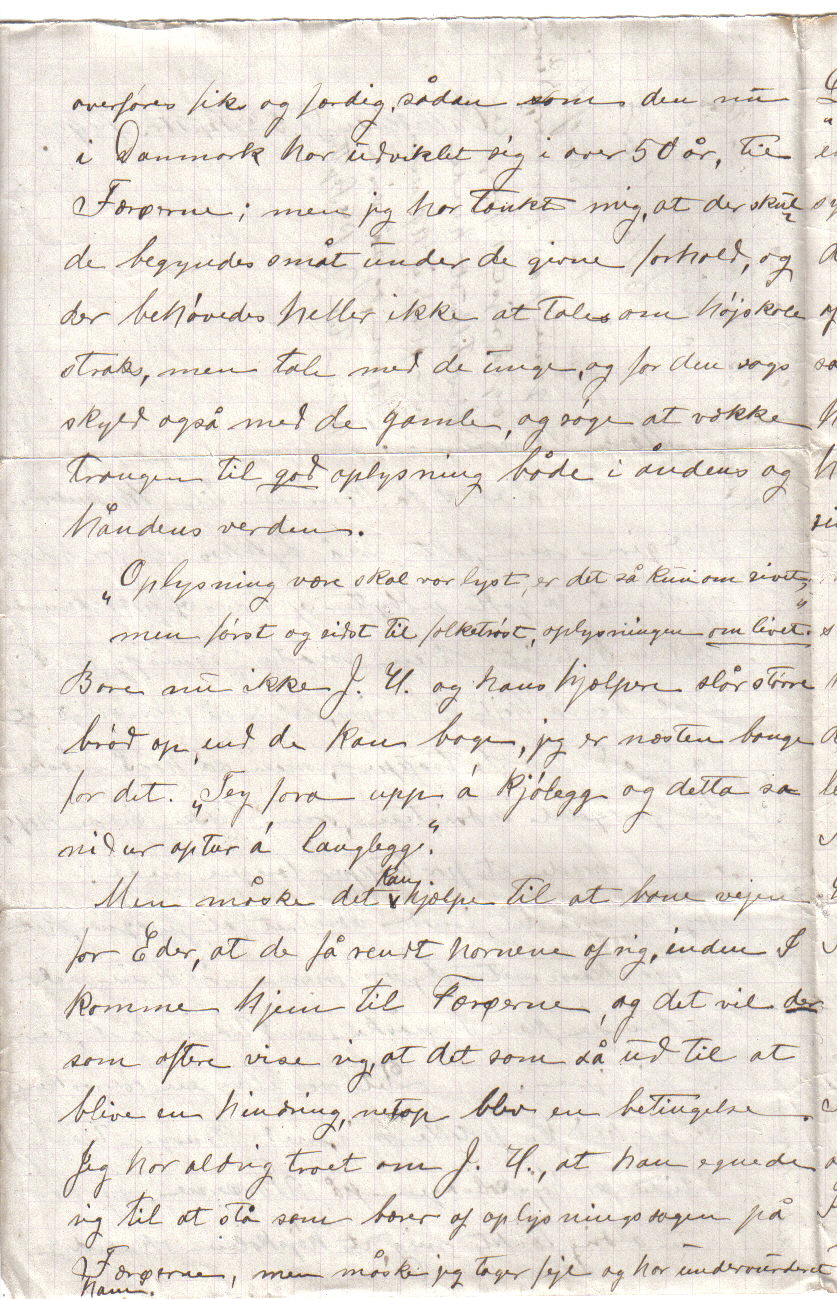 overføres fiks og færdig, sådan som den nu
i Danmark har udviklet sig i over 50 år, til
Færøerne; men jeg har tænkt mig, at der skul-
de begyndes småt under de givne forhold, og
der behøvedes heller ikke at tales om højskole
straks, men tale med de unge, og for den sags
skyld også med de gamle, og søge at vække
trangen til god oplysning både i åndens og
håndens verden.
„Oplysning være skal vor lyst, er det så kun om sivet,
men først og sidst til folketrøst, oplysningen om livet."
Bare nu ikke J. H. og hans hjælpere slår større
brød op, end de kan bage, jeg er næsten bange
for det. „Tey fara upp á Kjólegg og detta so
niður aptur á langlegg."
Men måske det kan hjælpe til at bane vejen
for Eder, at de få rendt hornene af sig, inden I
komme hjem til Færøerne, og det vil der
som oftere vise sig, at det som så ud til at
blive en hindring, netop blev en betingelse.
Jeg har aldrig troet om J. H., at han egnede
sig til at stå som bærer af oplysningssagen på
Færøerne, men måske jeg tager fejl og har undervurderet
ham.